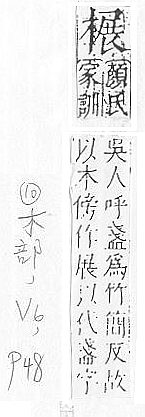 㮟
顏氏
家訓
吳人呼盞爲竹簡反故
以木傍作㮟以代盞字
⑩木部,V6,
P48